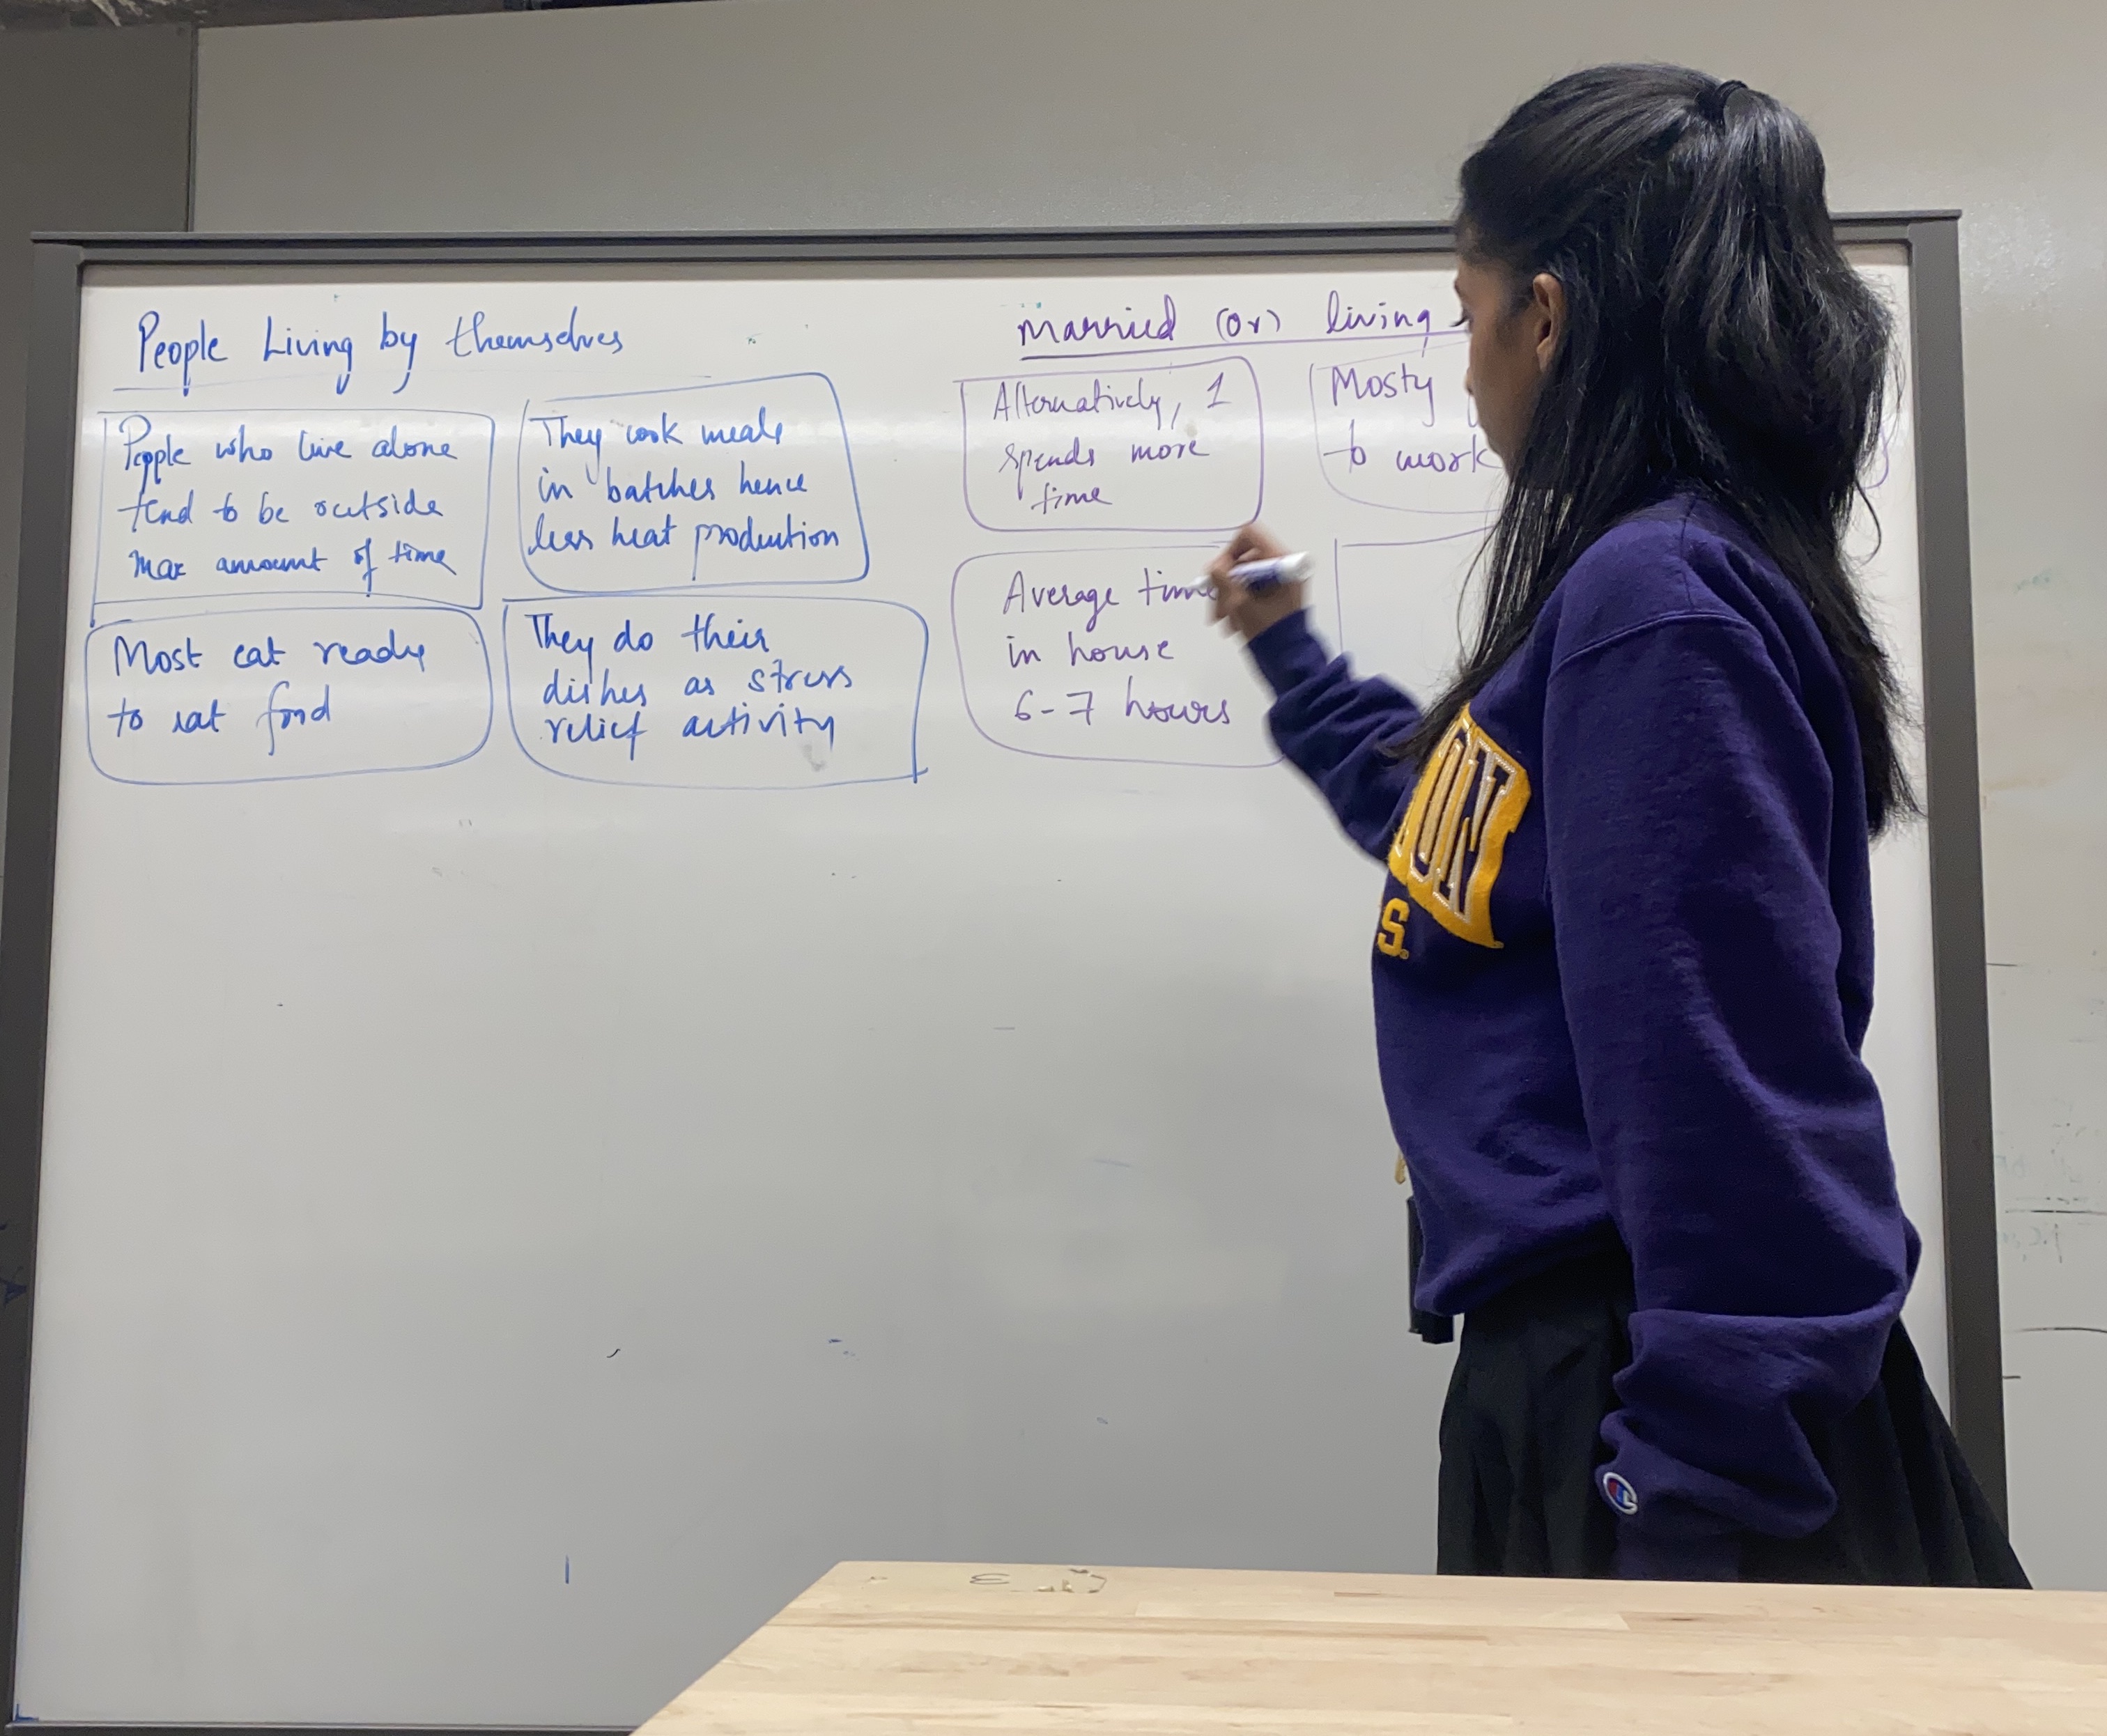 People Living by themselves
People who live alone
tend to be outside
max amount of time
They cook meals
in batches hence
less heat production
Most eat ready
to eat food
They do their
dishes as stress
relief activity
Married (or) living
Alternatively, 1
spends more
time
Mosty
to work
Average time
in house
6-7 hours
S.